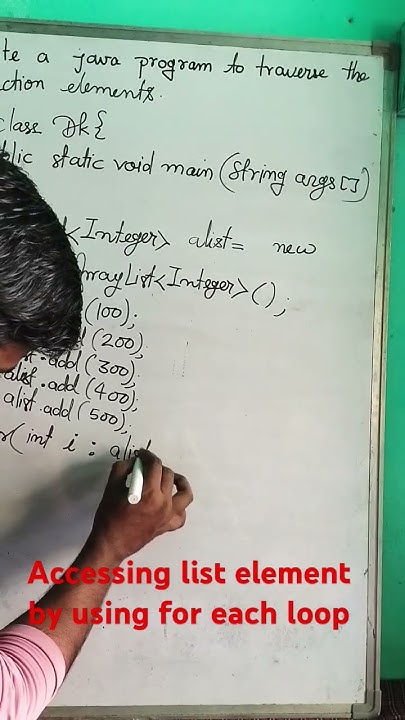 te a java program to traverse the
ction elements.
class Dk{
blic static void main (String args[])
t<Integer> alist= new
ArrayList<Integer>();
(100);
d (200);
st.add (300);
alist.add (400);
alist.add (500);
r( int i : alist
Accessing list element
by using for each loop